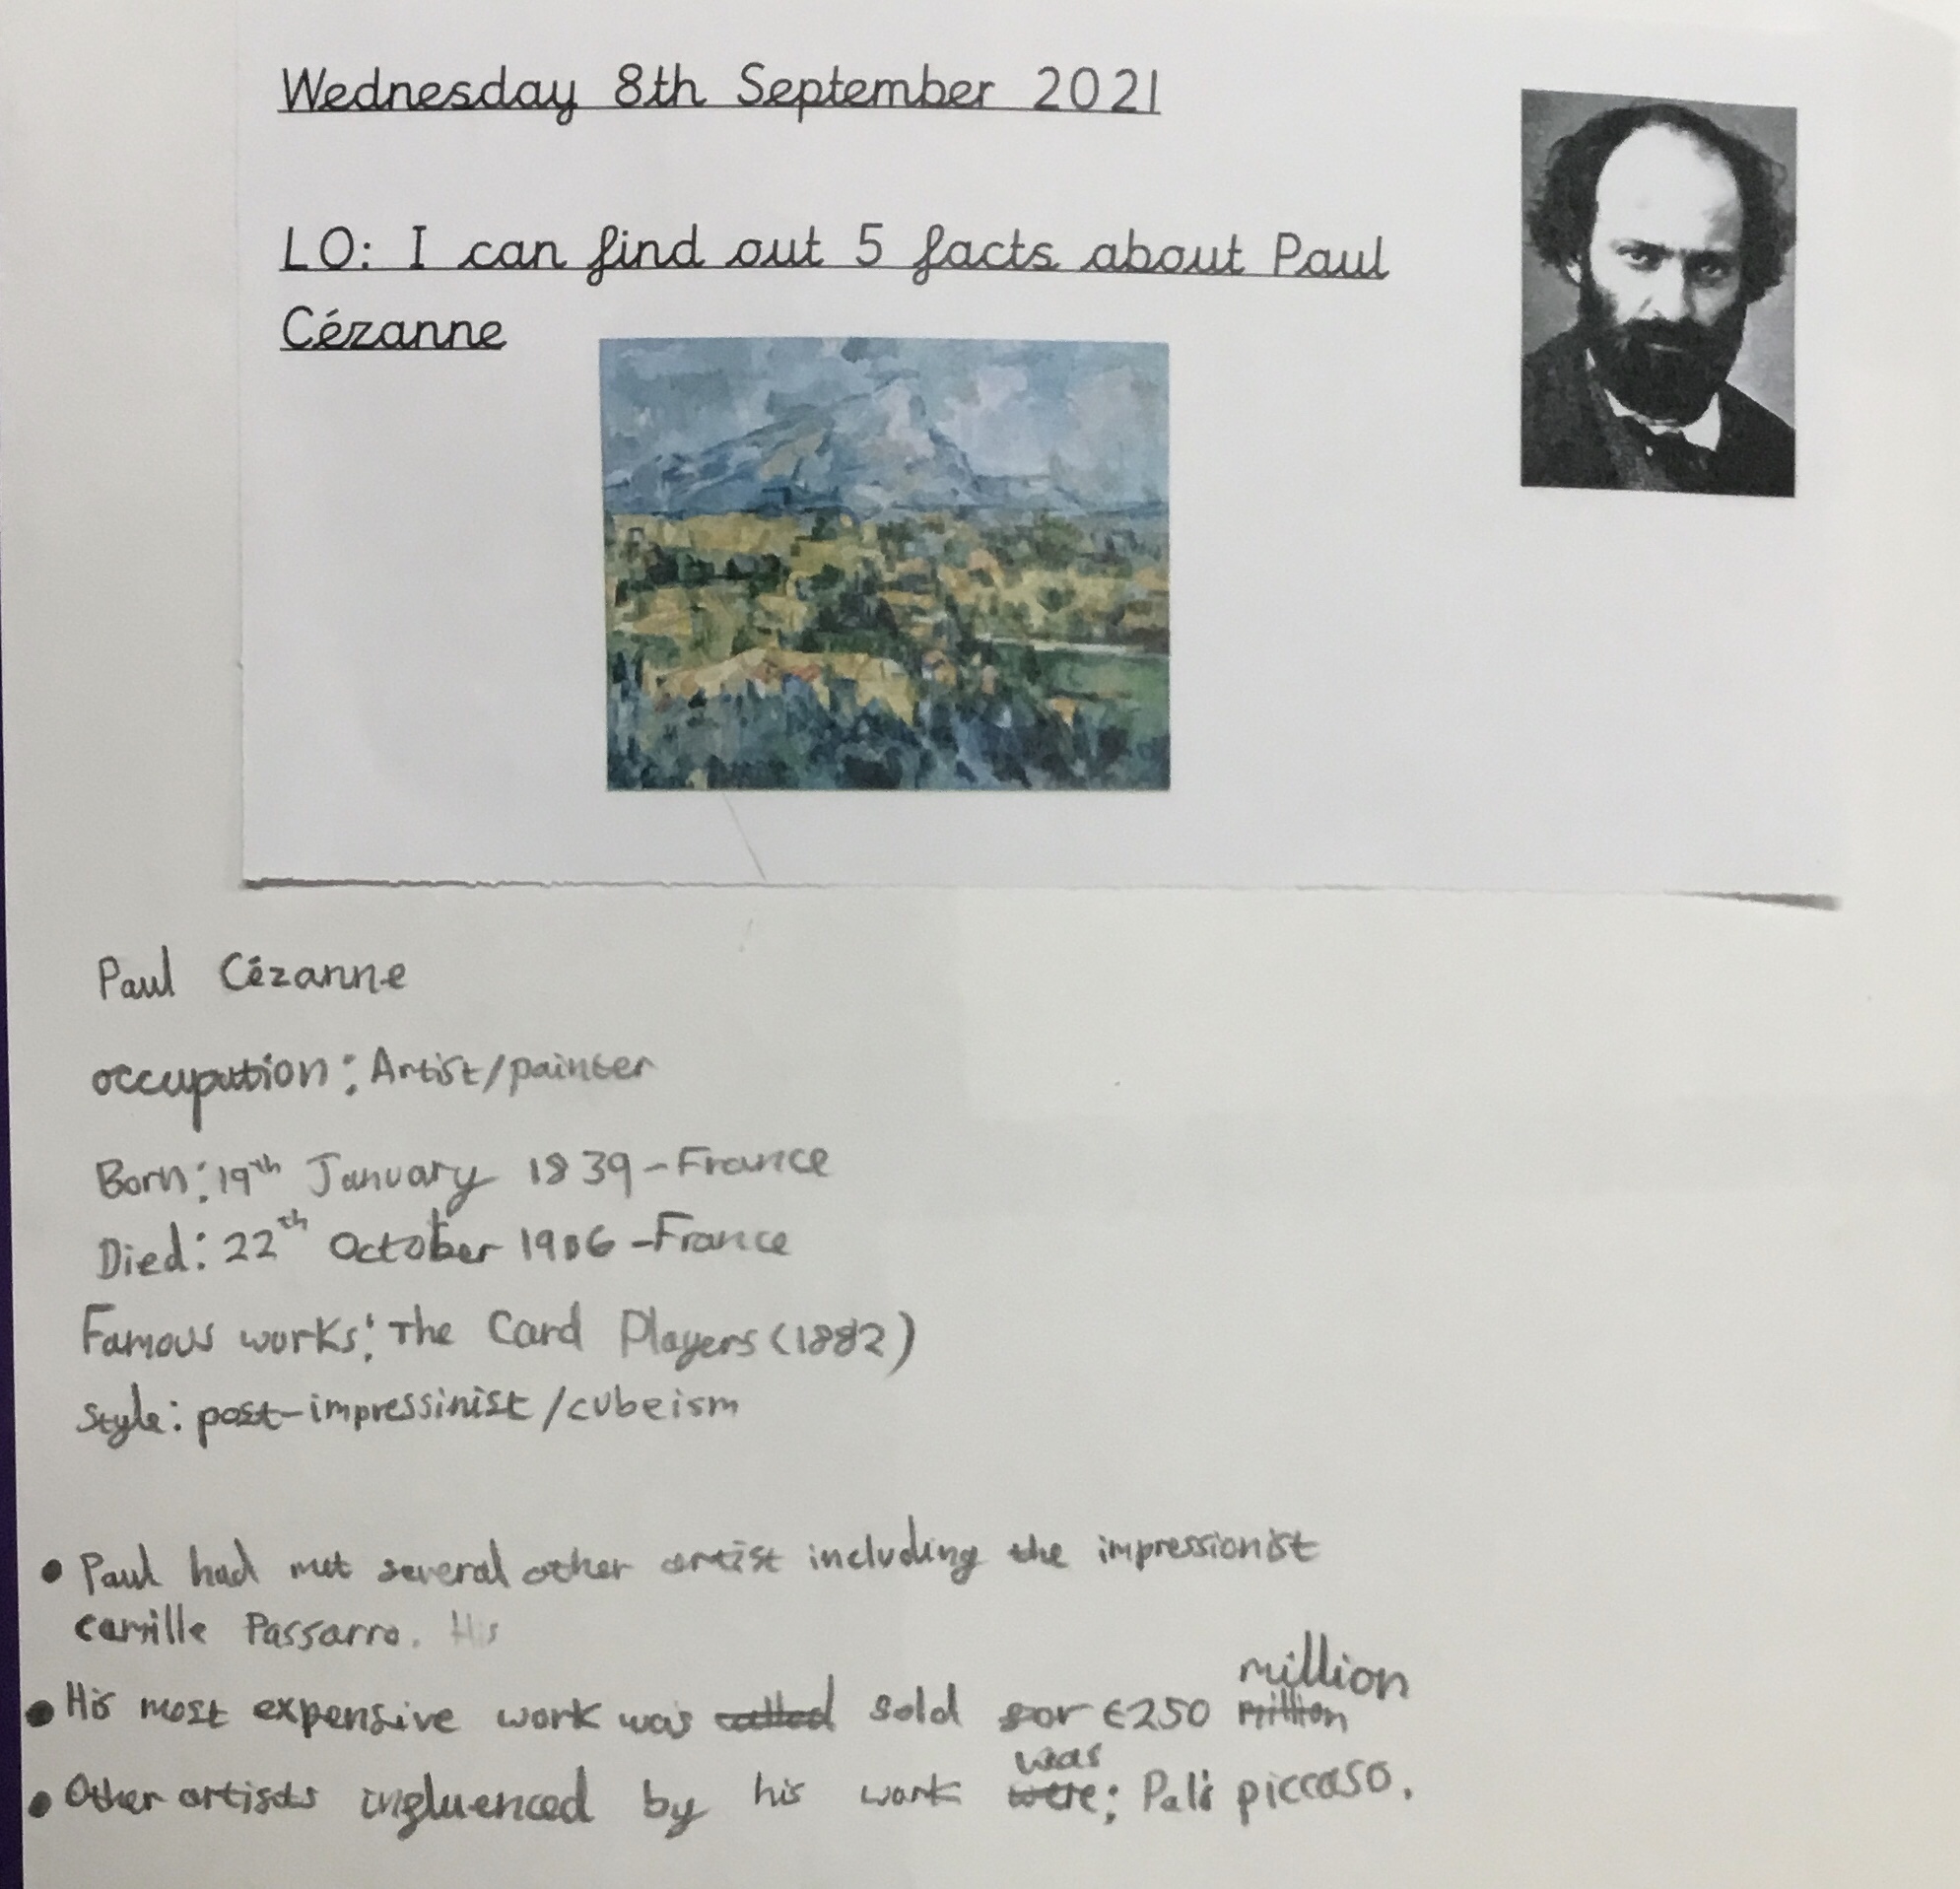 Wednesday 8th September 2021
LO: I can find out 5 facts about Paul
Cézanne
Paul Cézanne
occupation: Artist/painter
Born: 19th January 1839-France
Died: 22th October 1906-France
Famous works: The Card Players (1882)
Style: post-impressinist/cubeism
• Paul had met several other artist including the impressionist
camille Passarro. His
• His most expensive work was sold for €250 million
• Other artists influenced by his work was; Pali piccaso.